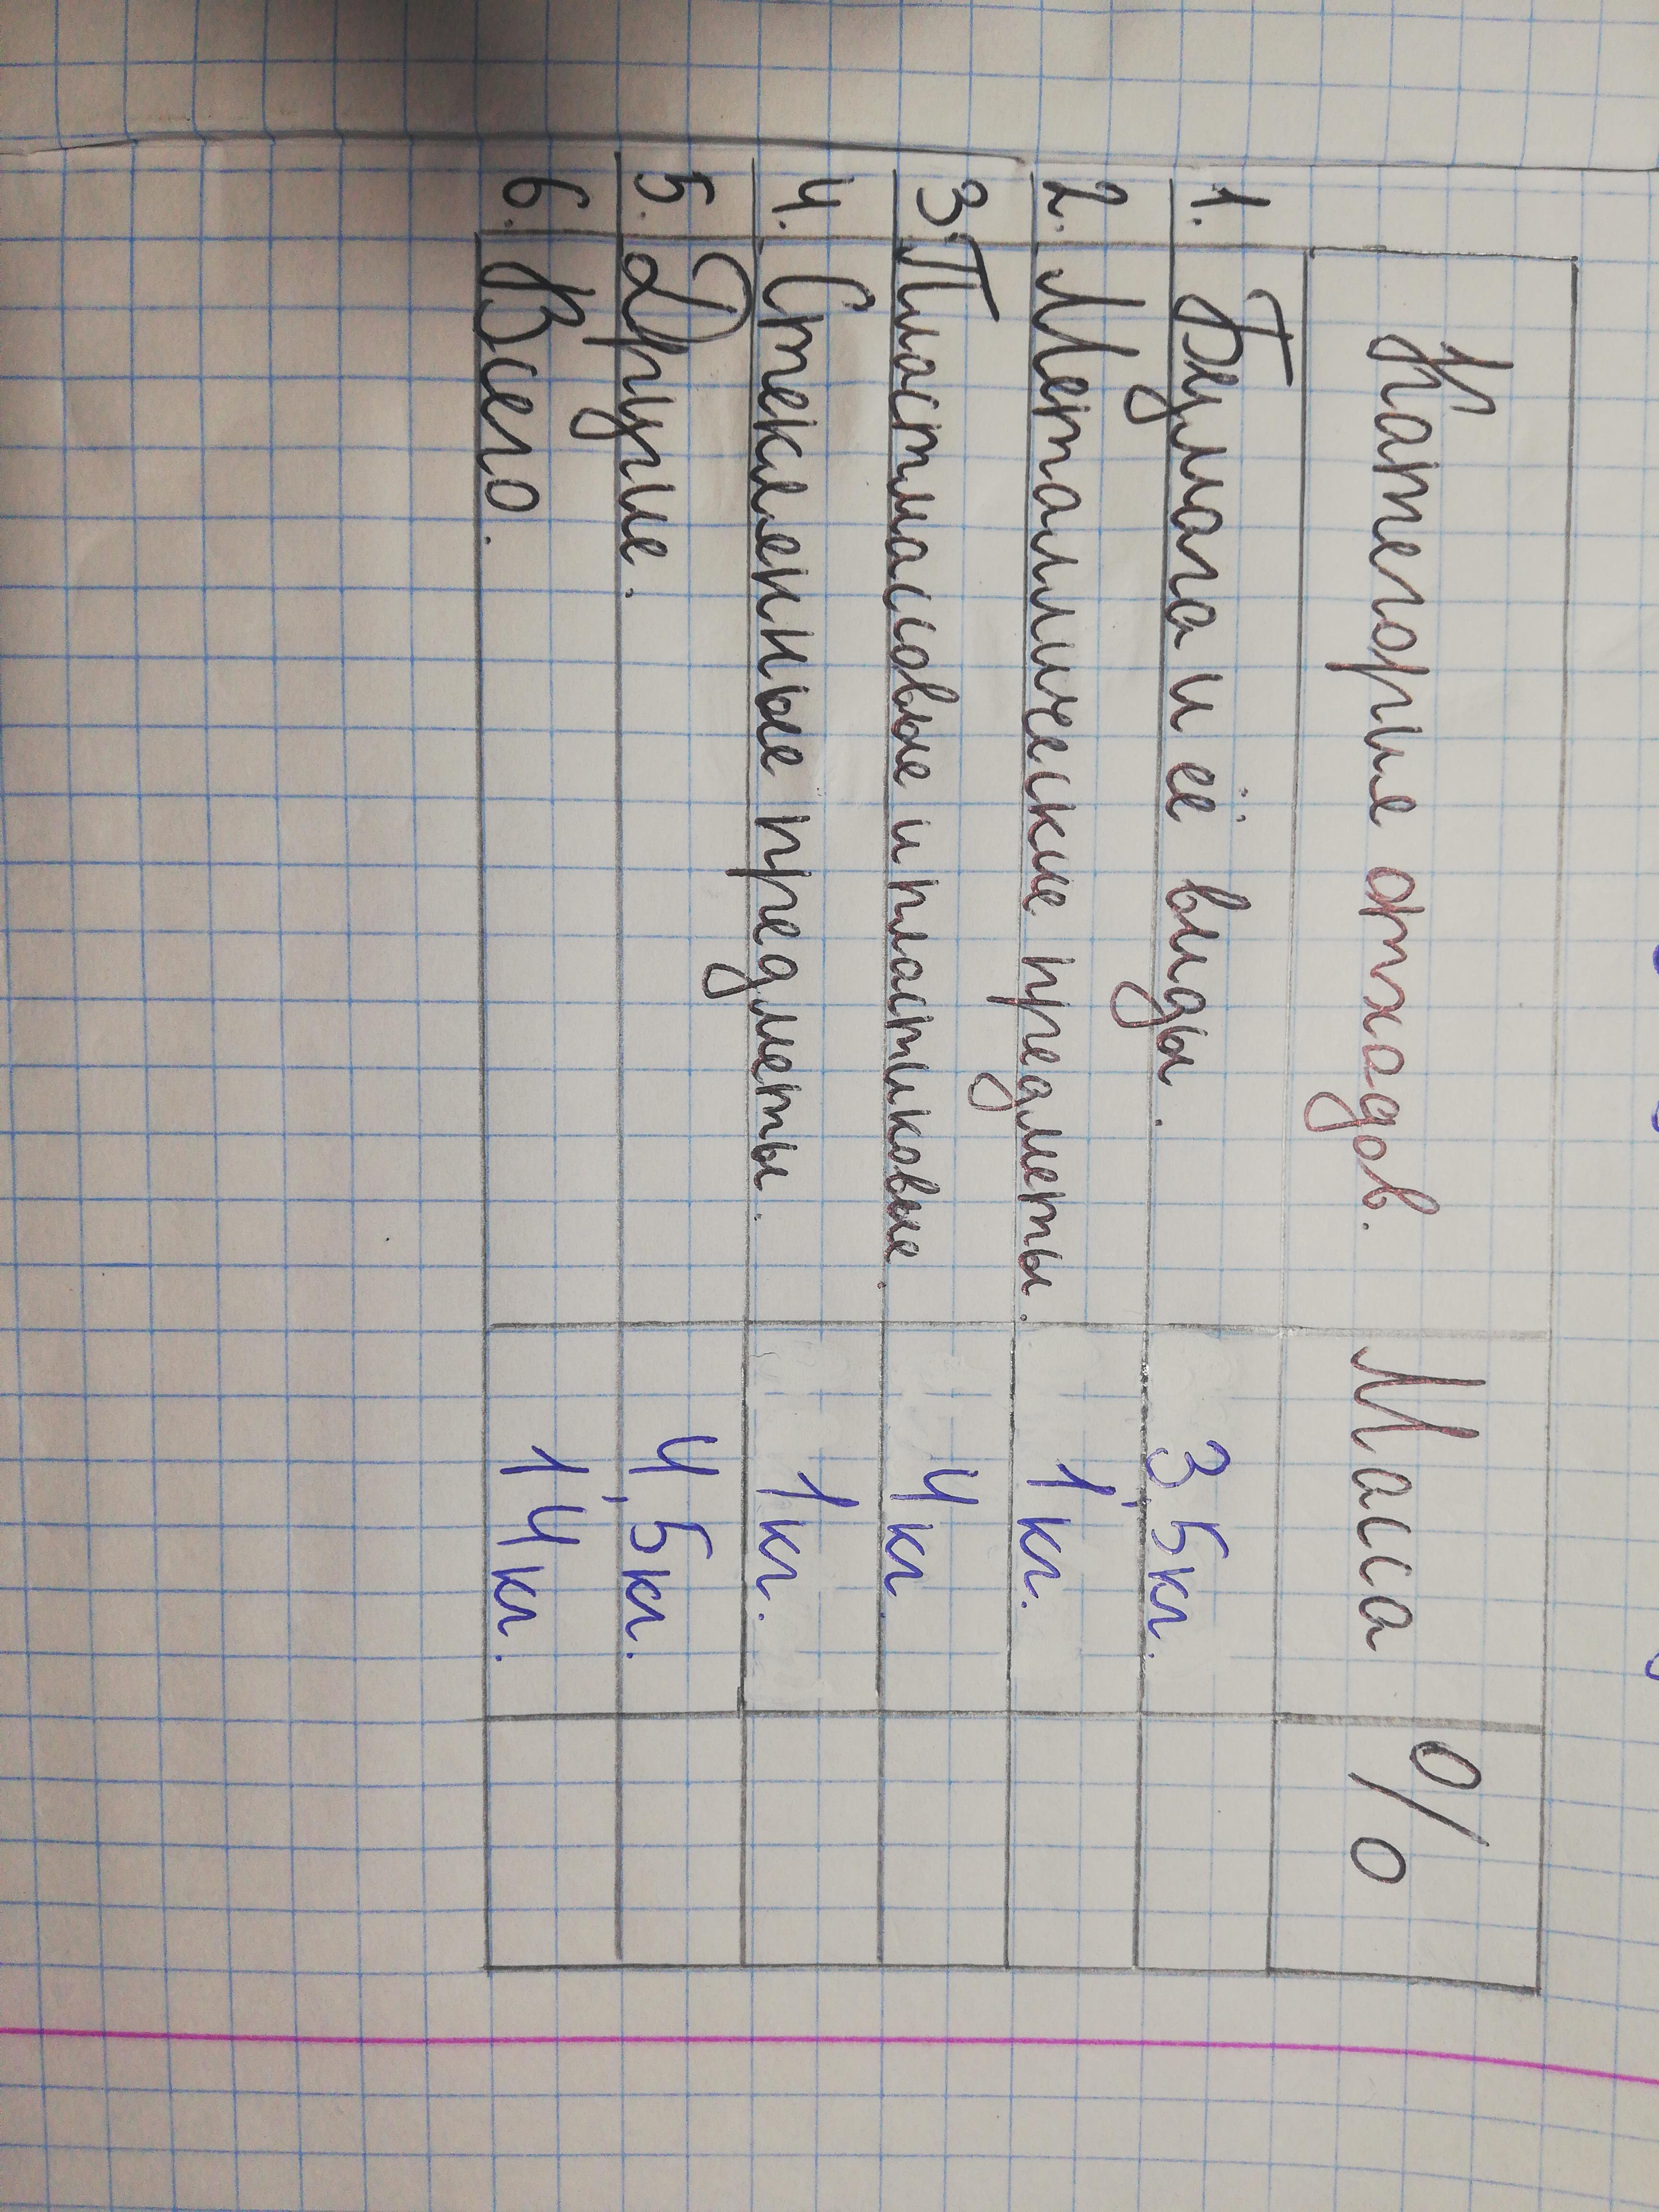 Категорие отхадов. Масса %
1. Бумага и её виды. 3,5кг.
2. Металлические предметы. 1 кг.
3. Пластмассовые и пластиковые. 4 кг.
4. Стекленные предметы. 1 кг.
5. Другие. 4,5кг.
6. Всего. 14кг.